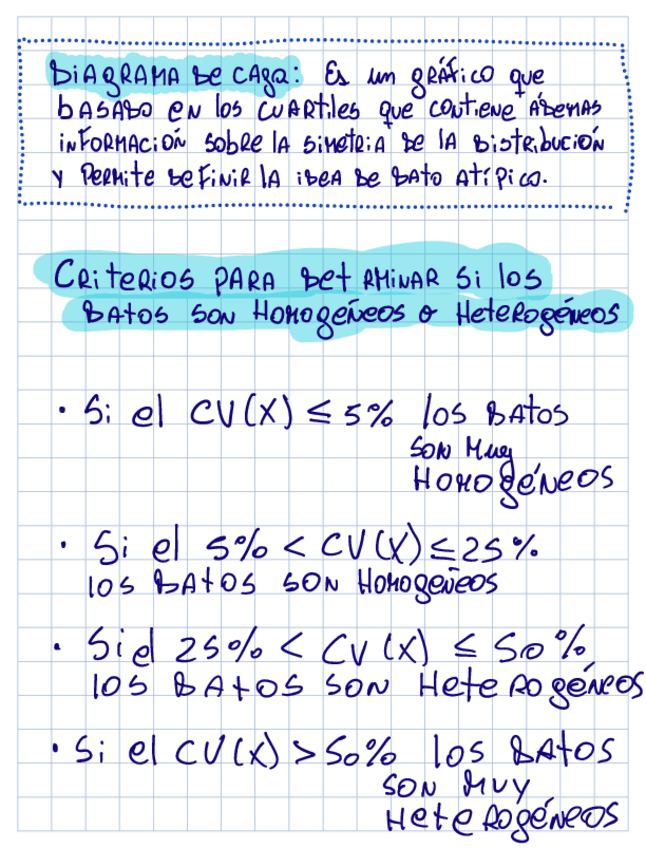 DIAGRAMA DE CAJA: ES un GRÁFICO que
BASADO EN los CUARTILES que CONTIENE ADEMÁS
INFORMACIÓN SOBRE LA SIMETRIA DE LA DISTRIBUCIÓN
Y PERMITE DEFINIR LA IDEA DE DATO ATÍPICO.
CRITERIOS PARA DET RMINAR SI los
DATOS SON HOMOGÉNEOS O HETEROGÉNEOS
· Si el CV(X) ≤ 5% los DATOS
SON MUY
HOMOGÉNEOS
· Si el 5% < CV(X) ≤ 25%
los DATOS SON HOMOGÉNEOS
· Si el 25% < CV(X) ≤ 50%
los DATOS SON HETEROGÉNEOS
· Si el CV(X) > 50% los DATOS
SON MUY
HETEROGÉNEOS